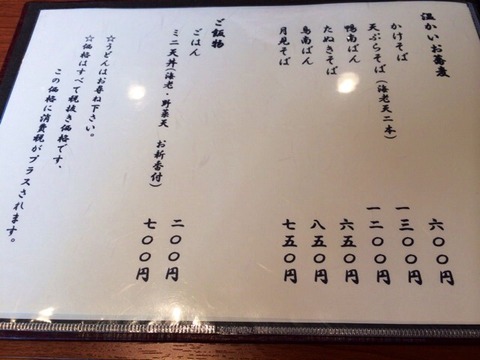 温かいお蕎麦
かけそば 六〇〇円
天ぷらそば(海老天二本) 一三〇〇円
鴨南ばん 一二〇〇円
たぬきそば 六五〇円
鳥南ばん 八五〇円
月見そば 七五〇円
ご飯物
ごはん 二〇〇円
ミニ天丼(海老・野菜天 お新香付) 七〇〇円
☆うどんはお尋ね下さい。
☆価格はすべて税抜き価格です、
この価格に消費税がプラスされます。